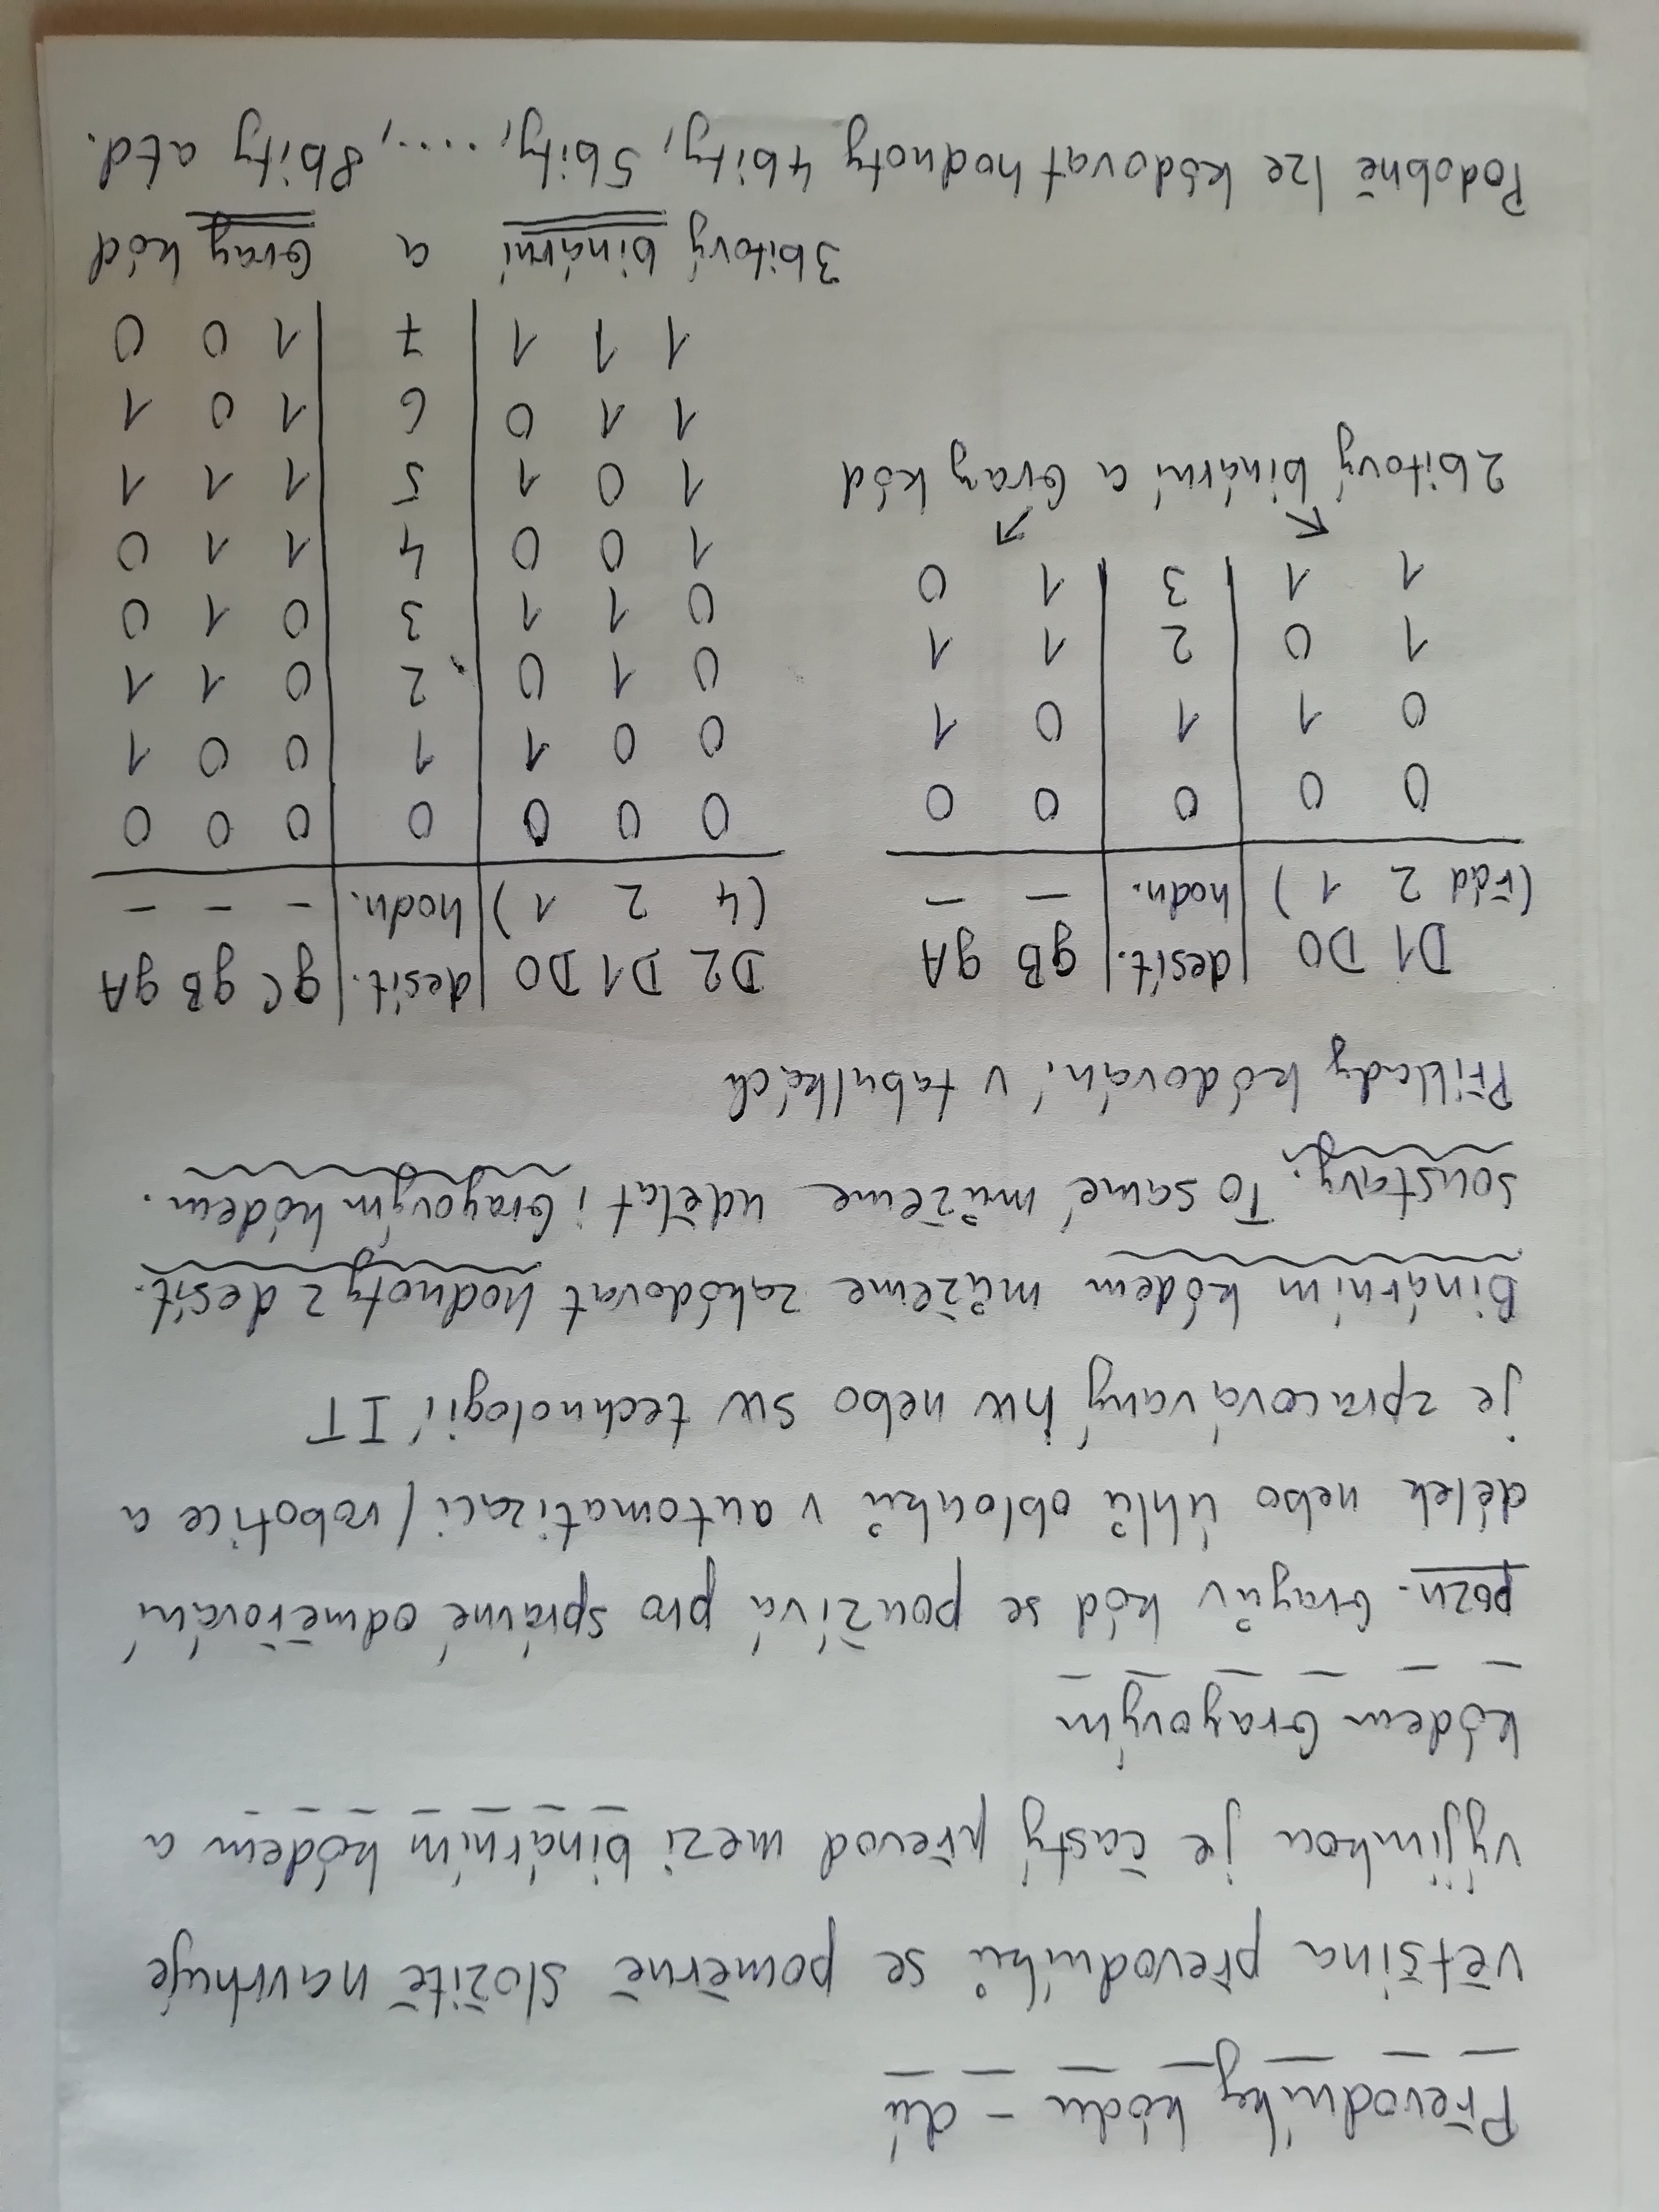 Převodníky kódu - dú
většina převodníků se poměrně složitě navrhuje
výjimkou je častý převod mezi binárním kódem a
kódem Grayovým
pozn. Grayův kód se používá pro správné odměřování
délek nebo úhlů oblouků v automatizaci/robotice a
je zpracovávaný hw nebo sw technologií IT
Binárním kódem můžeme zakódovat hodnoty z desít.
soustavy. To samé můžeme udělat i Grayovým kódem.
Příklady kódování v tabulkách
D1 D0 | desít. | gB gA
(řád 2 1) | hodn. | – –
0 0 | 0 | 0 0
0 1 | 1 | 0 1
1 0 | 2 | 1 1
1 1 | 3 | 1 0
2bitový binární a Gray kód
D2 D1 D0 | desít. | gC gB gA
(4 2 1) | hodn. | – – –
0 0 0 | 0 | 0 0 0
0 0 1 | 1 | 0 0 1
0 1 0 | 2 | 0 1 1
0 1 1 | 3 | 0 1 0
1 0 0 | 4 | 1 1 0
1 0 1 | 5 | 1 1 1
1 1 0 | 6 | 1 0 1
1 1 1 | 7 | 1 0 0
3bitový binární a Gray kód
Podobně lze kódovat hodnoty 4bity, 5bity, ...., 8bity atd.